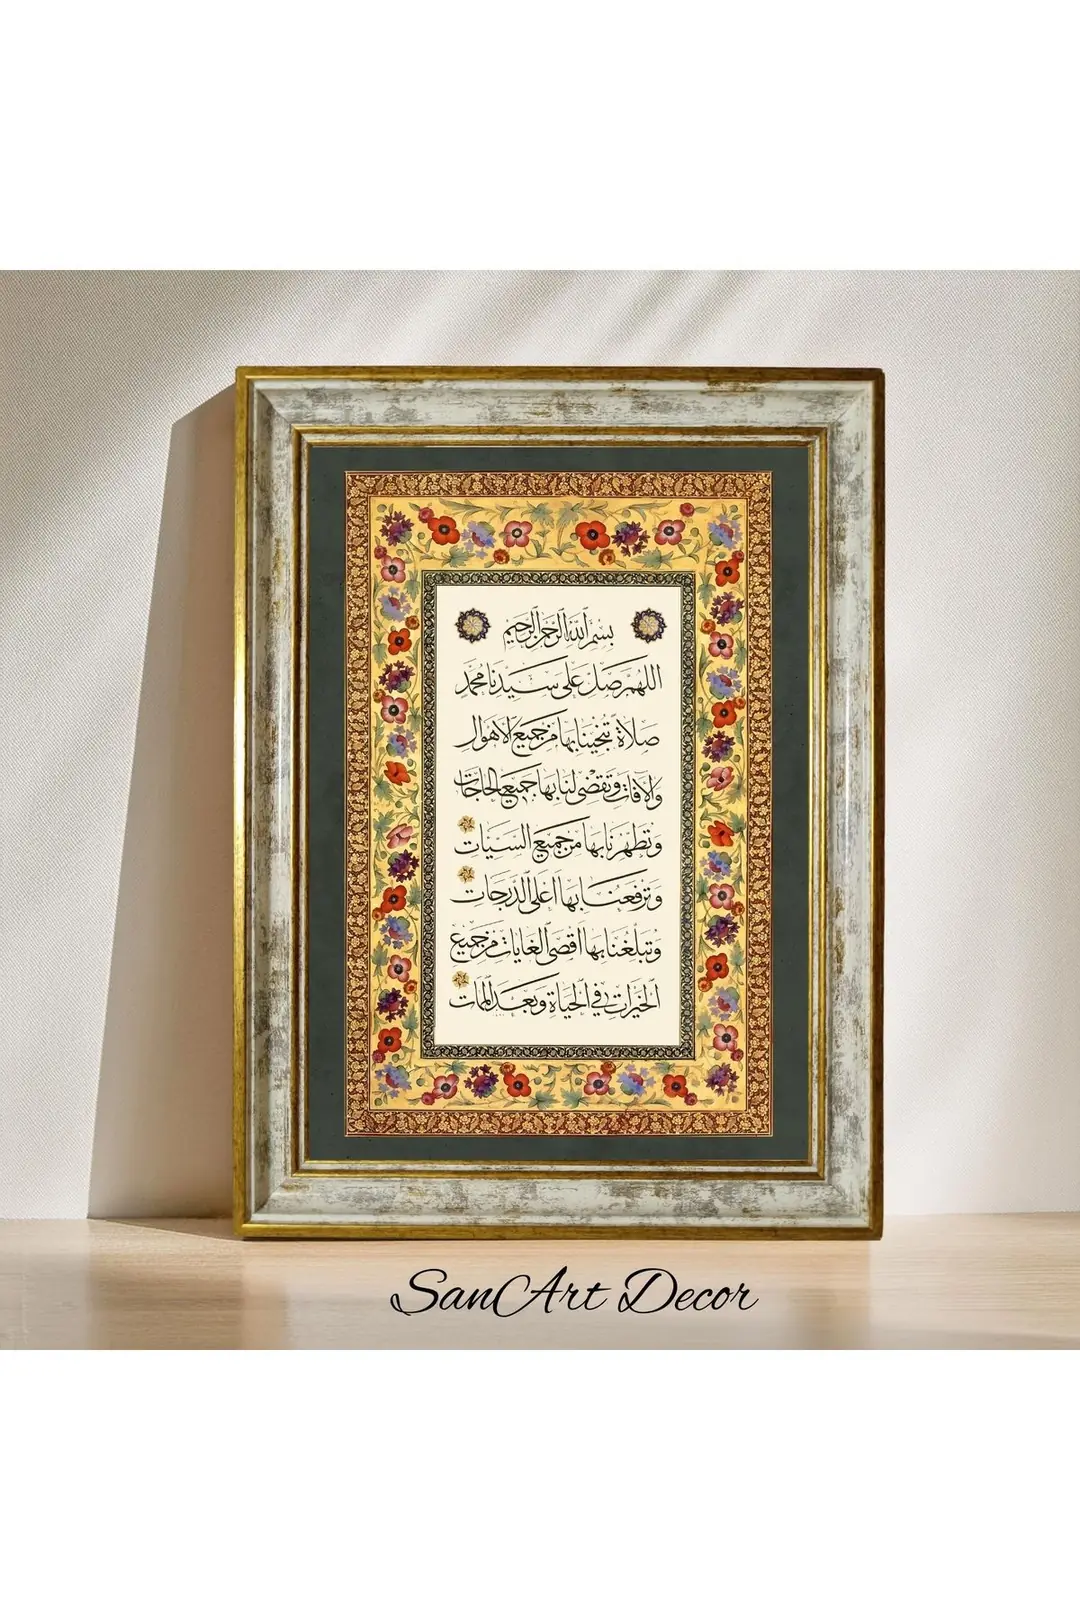 بسم الله الرحمن الرحيم
اللهم صل على سيدنا محمد
صلاة تنجينا بها من جميع الاهوال
والآفات وتقضى لنا بها جميع الحاجات
وتطهرنا بها من جميع السيئات
وترفعنا بها اعلى الدرجات
وتبلغنا بها اقصى الغايات من جميع
الخيرات في الحياة وبعد الممات
SanArt Decor